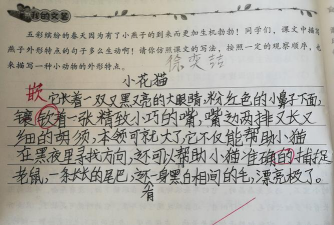 我的文笔
五彩缤纷的春天因为有了小燕子的到来而更加生机勃勃!同学们,课文中描写
燕子外形特点的句子多么生动啊!请你仿照课文的写法,按照一定的观察顺序,也
来描写一种小动物的外形特点。
小花猫
嵌
它长着一双又黑又亮的大眼睛,粉红色的小鼻子下面,
镶 着一张精致小巧的嘴,嘴边两排又长又
细的胡须,本领可就大了,它不仅能帮助小猫
在黑夜里寻找方向,还可以帮助小猫准确的捕捉
老鼠,一条长长的尾巴,还一身黑白相间的毛,漂亮极了。
有